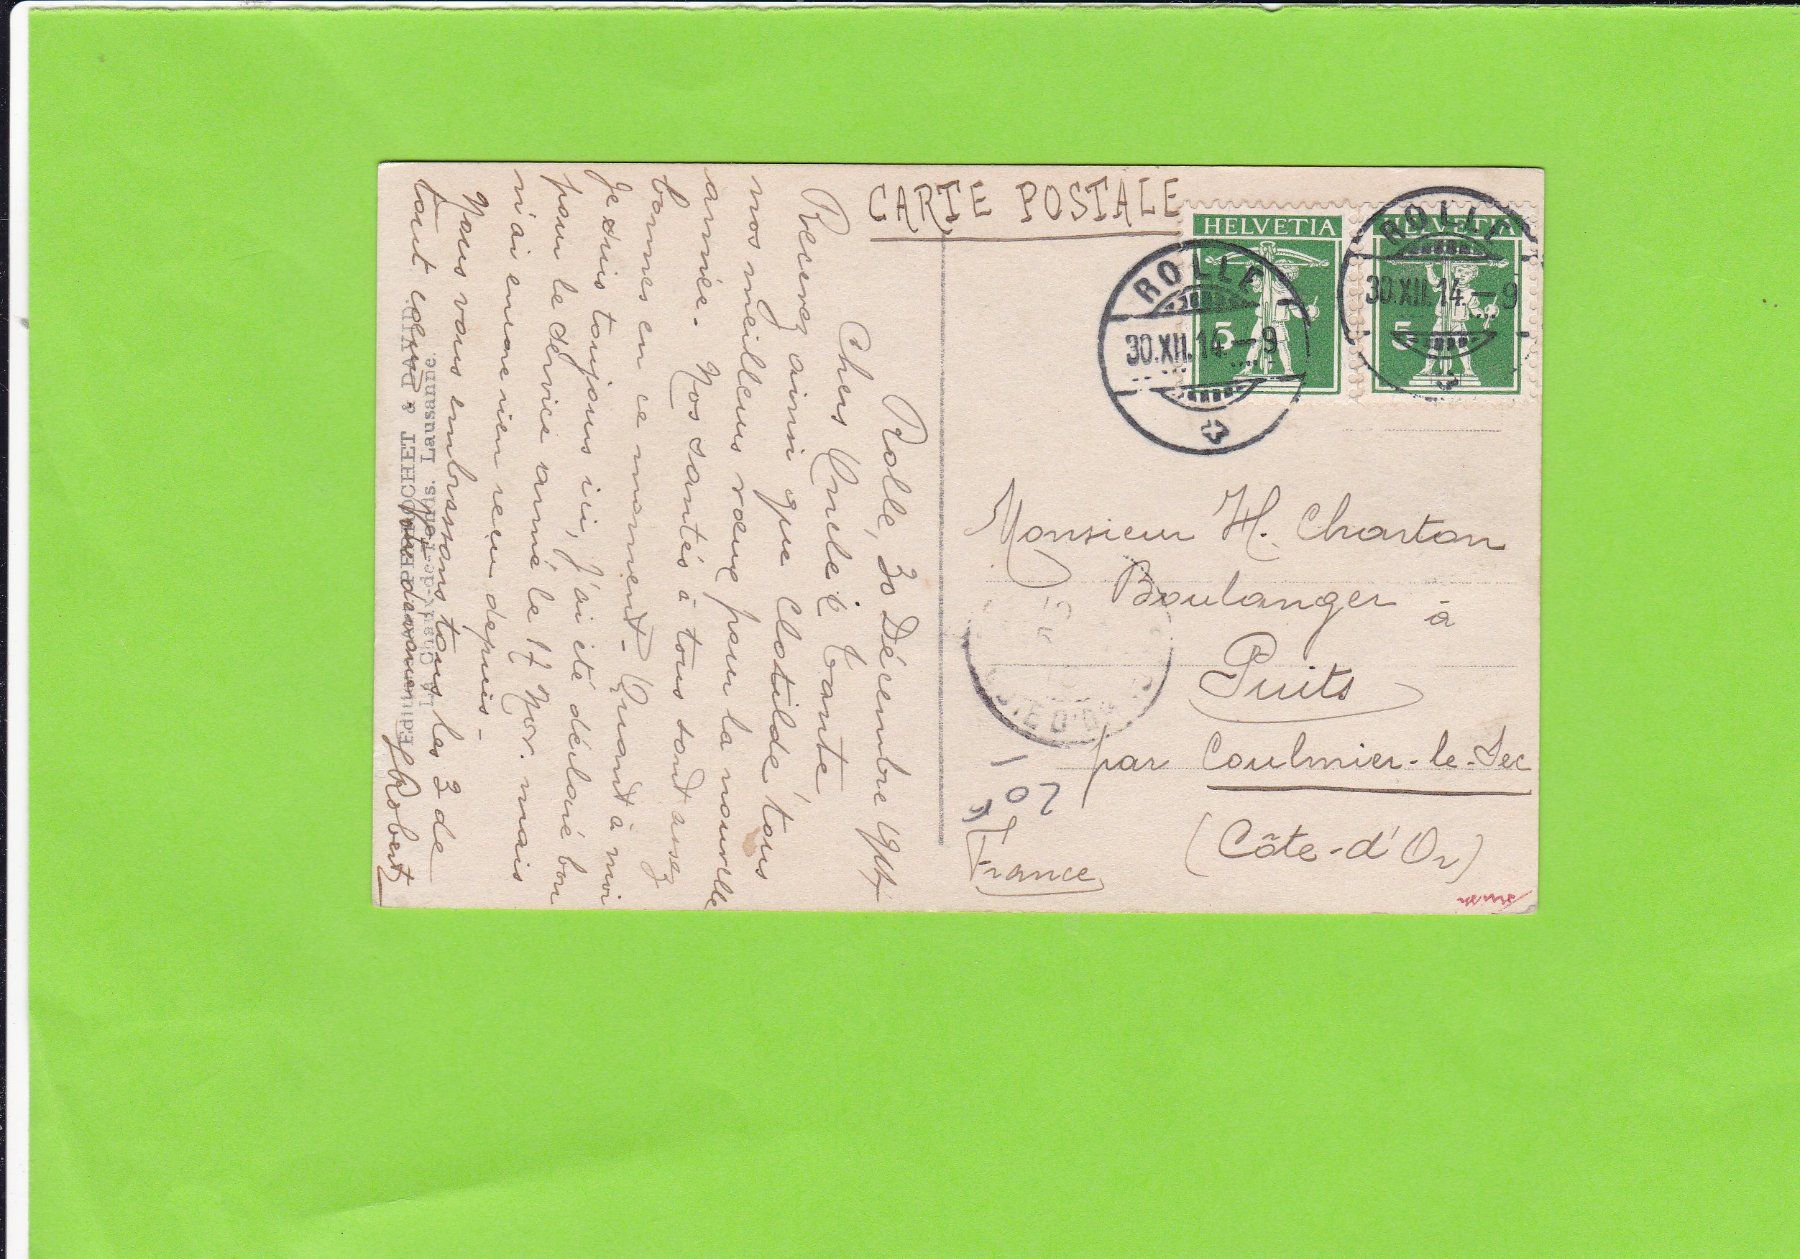 CARTE POSTALE
HELVETIA
5
HELVETIA
5
ROLLE
30.XII.14.–9
ROLLE
30.XII.14.–9
Monsieur H. Charton
Boulanger à
Puits
par Coulmier-le-Sec
(Côte-d'Or)
France
Rolle, 30 Décembre 1914
Chers Oncle & tante
Recevez ainsi que Clotilde tous
nos meilleurs vœux pour la nouvelle
année. Nos santés à tous sont assez
bonnes en ce moment. Quand à moi
je suis toujours ici, j'ai été déclaré bon
pour le service armé le 17 Nov. mais
n'ai encore rien reçu depuis.
Nous vous embrassons tous les 3 de
tout cœur
Robert
& DAVID
Lausanne